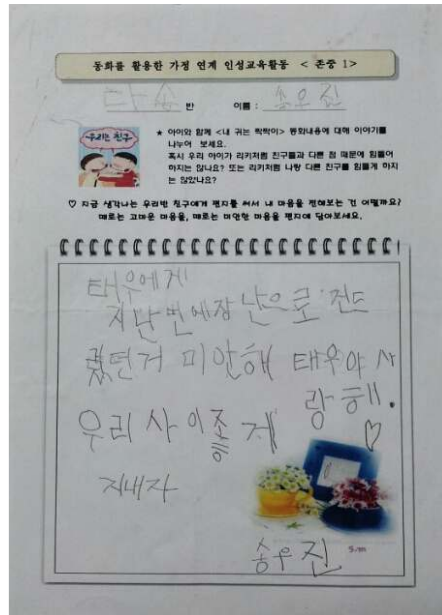 동화를 활용한 가정 연계 인성교육활동 < 존중 1>
다솜 반 이름 : 송우진
우리는 친구
★ 아이와 함께 <내 귀는 짝짝이> 동화내용에 대해 이야기를
나누어 보세요.
혹시 우리 아이가 리키처럼 친구들과 다른 점 때문에 힘들어
하지는 않나요? 또는 리키처럼 나랑 다른 친구를 힘들게 하지
는 않았나요?
♡ 지금 생각나는 우리반 친구에게 편지를 써서 내 마음을 전해보는 건 어떨까요?
때로는 고마운 마음을, 때로는 미안한 마음을 편지에 담아보세요.
태우에게
지난번에장난으로 건드
렸던거 미안해 태우야 사
랑해.
우리 사이좋게 ♡
지내자
송우진